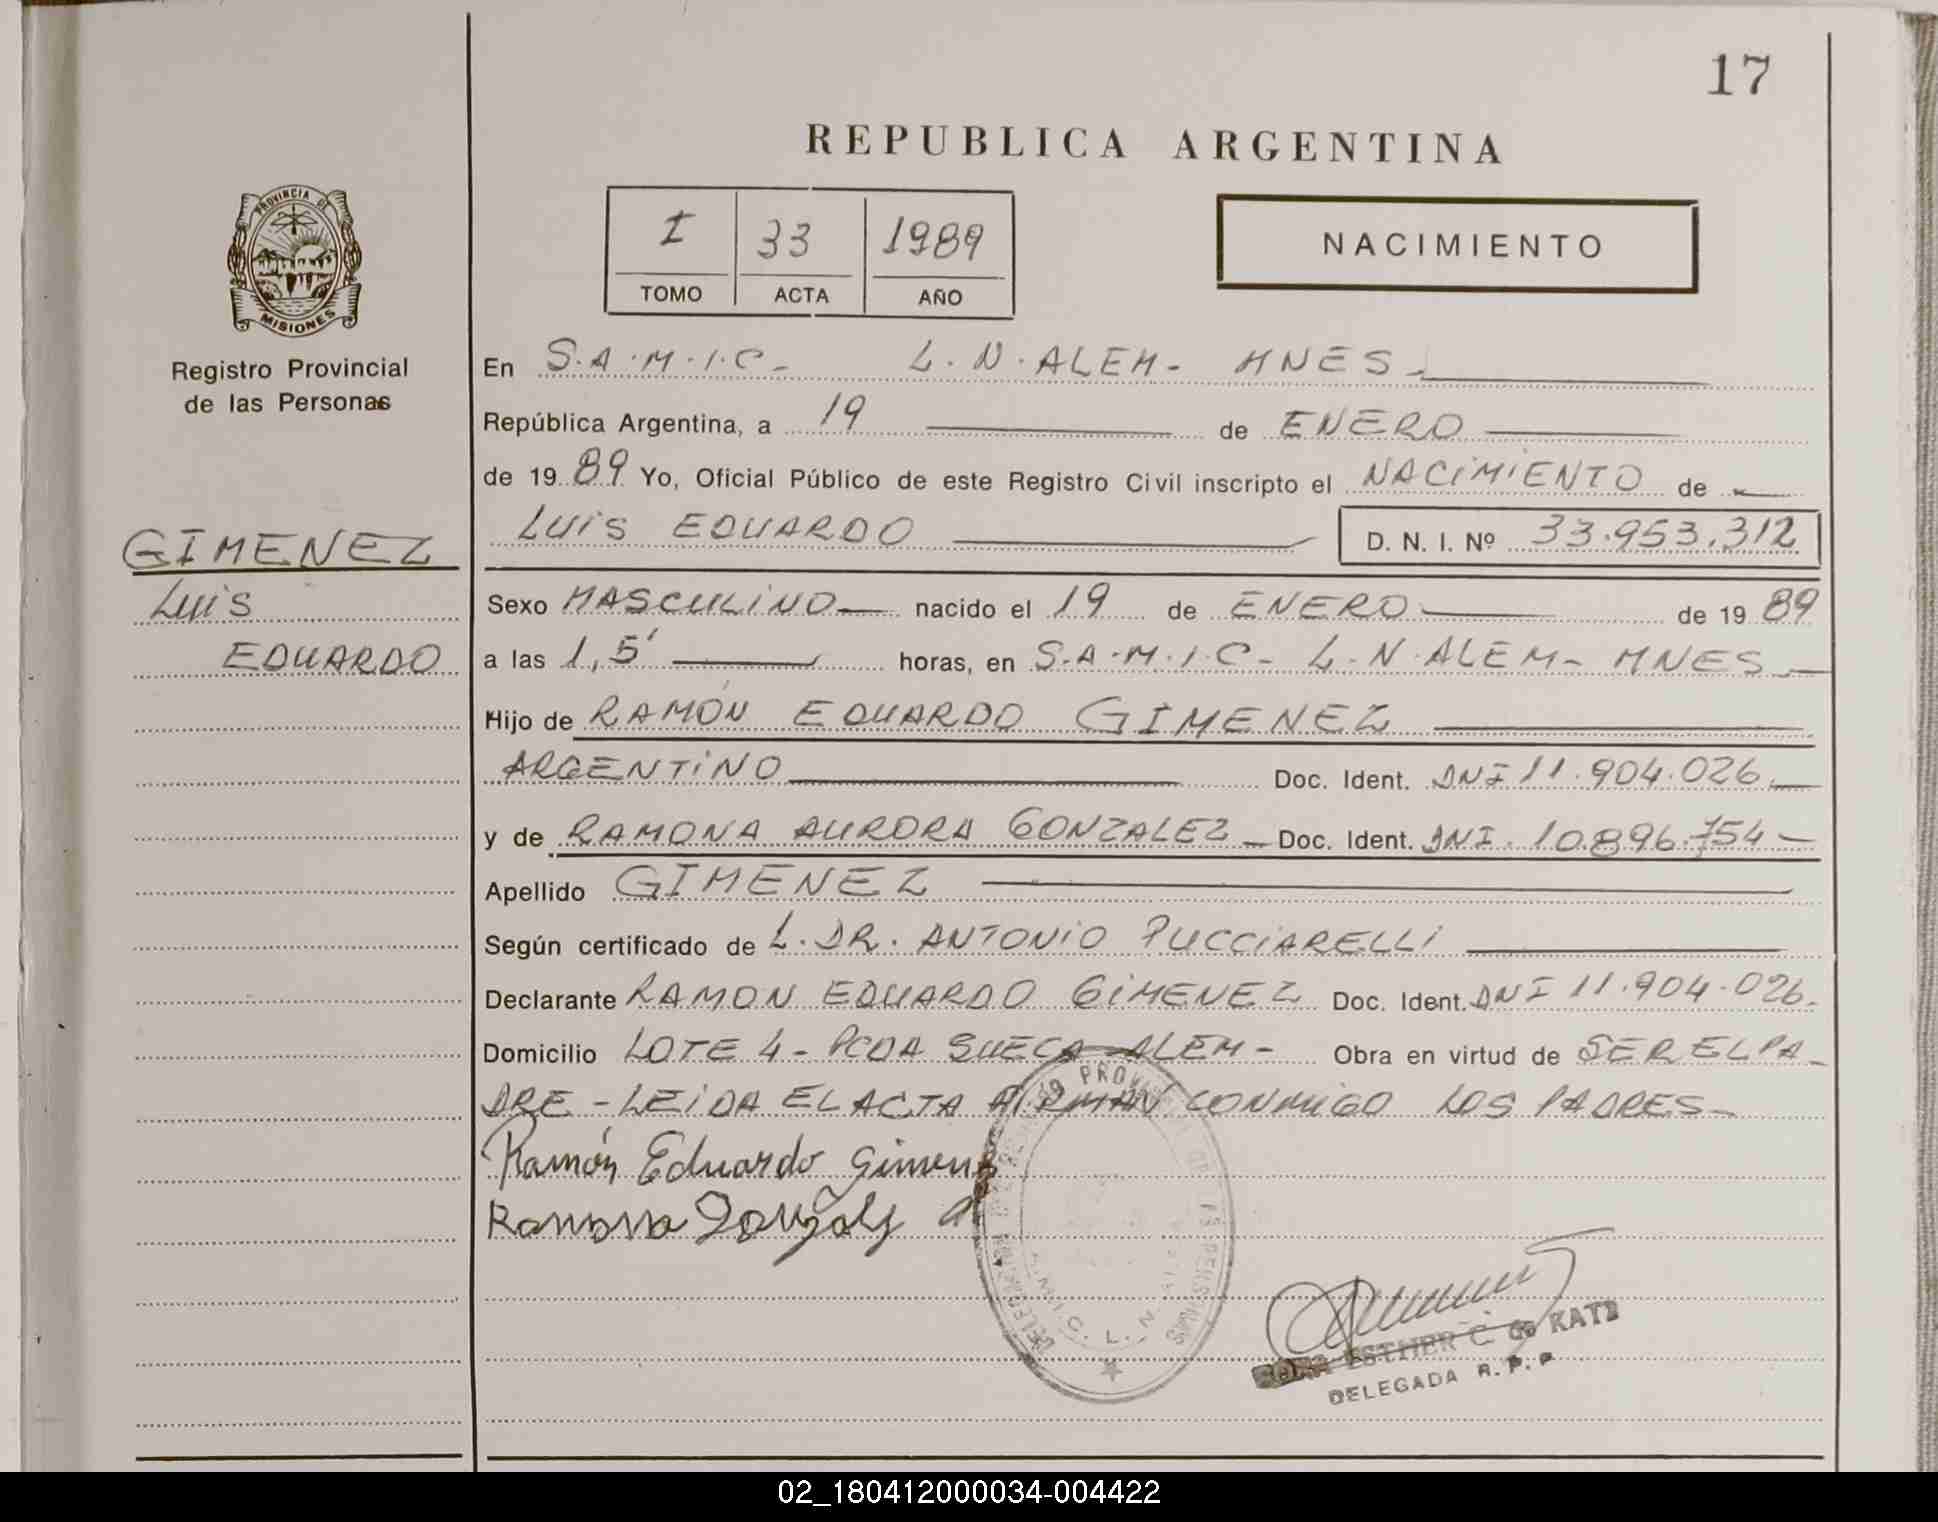 17
REPUBLICA ARGENTINA
PROVINCIA DE
MISIONES
Registro Provincial
de las Personas
I 33 1989
TOMO ACTA AÑO
NACIMIENTO
En S.A.M.I.C- L.N.ALEM- MNES-
República Argentina, a 19 de ENERO
de 1989 Yo, Oficial Público de este Registro Civil inscripto el NACIMIENTO de
LUIS EDUARDO D. N. I. Nº 33.953.312
GIMENEZ
LUIS
EDUARDO
Sexo MASCULINO nacido el 19 de ENERO de 1989
a las 1,5' horas, en S.A.M.I.C- L.N.ALEM- MNES-
Hijo de RAMÓN EDUARDO GIMENEZ
ARGENTINO Doc. Ident. DNI 11.904.026.
y de RAMONA AURORA GONZALEZ - Doc. Ident. DNI. 10.896.754-
Apellido GIMENEZ
Según certificado de L.DR. ANTONIO PUCCIARELLI
Declarante RAMON EDUARDO GIMENEZ Doc. Ident. DNI 11.904.026.
Domicilio LOTE 4- PCDA SUECA-ALEM- Obra en virtud de SER EL PA-
DRE - LEIDA EL ACTA FIRMAN CONMIGO LOS PADRES-
Ramón Eduardo Gimenez
Ramona
ESTHER C. de KATZ
DELEGADA R.P.P
02_180412000034-004422